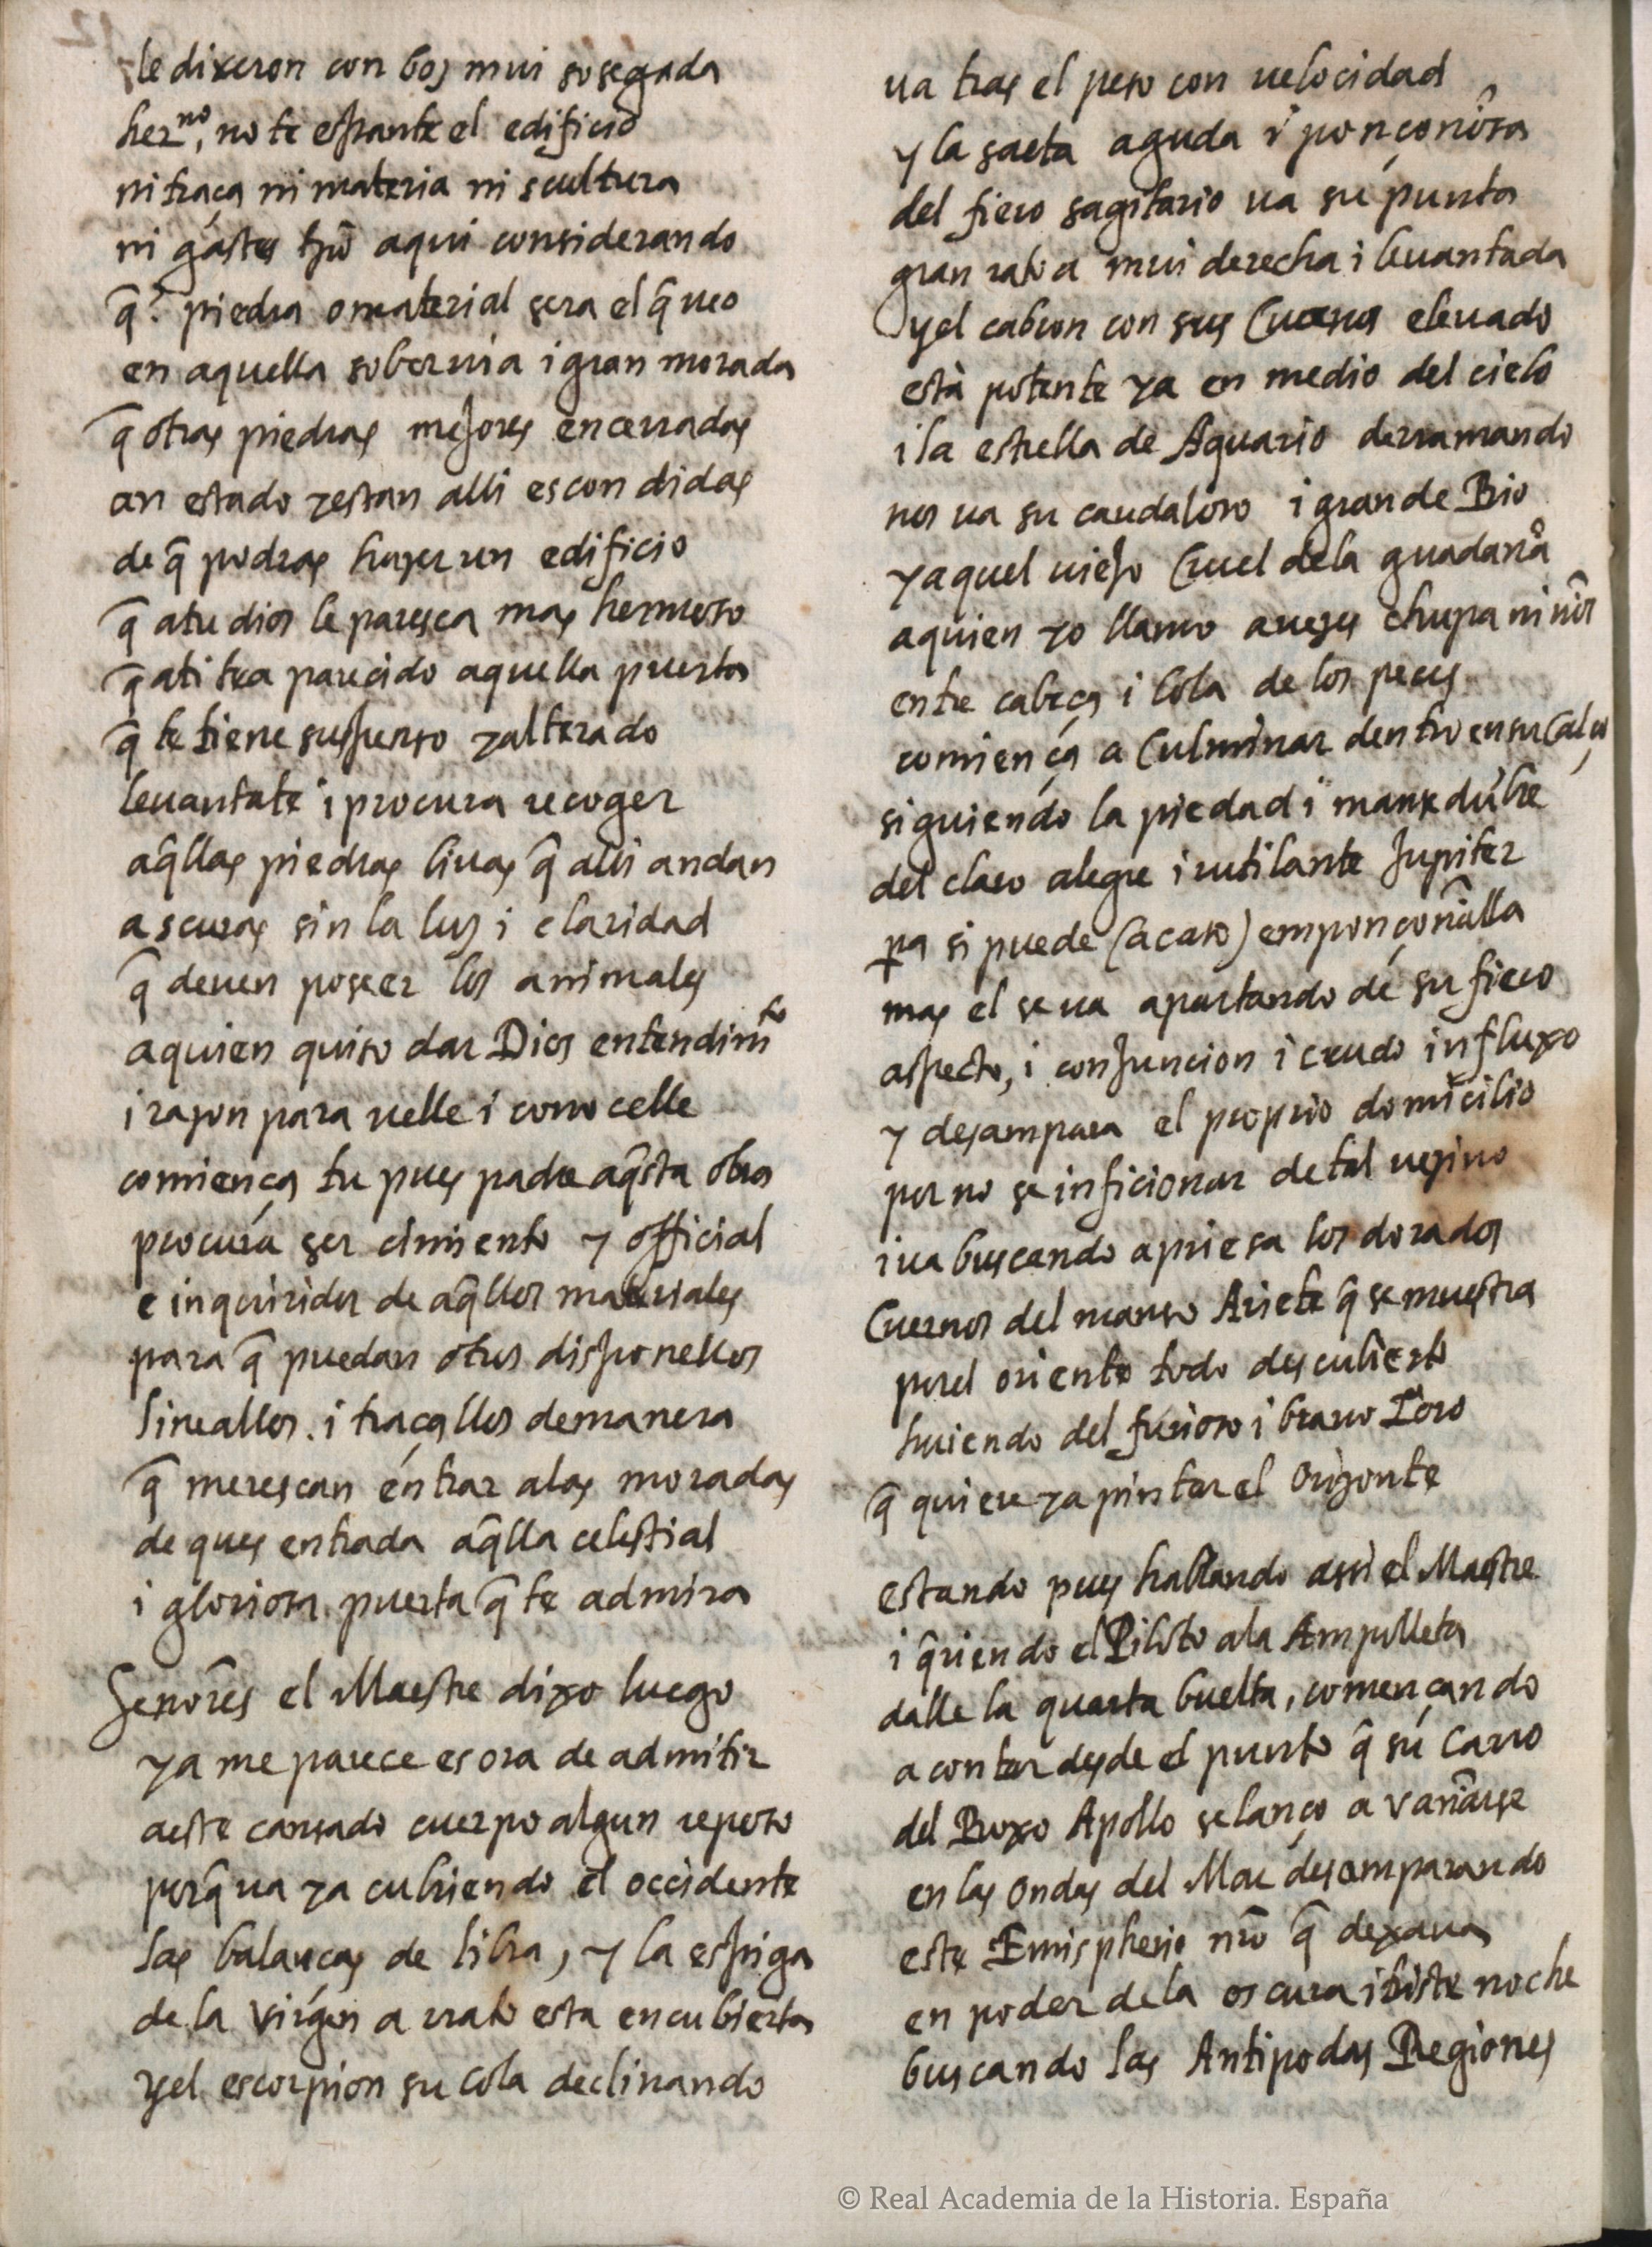 le dixeron con boz mui sosegada
her.no, no te espante el edificio
ni traça ni materia ni scultura
ni gastes tpō aqui considerando
q̃ piedra o material sera el q̃ veo
en aquella sobervia i gran morada
q̃ otras piedras mejores encerradas
an estado y estan alli escondidas
de q̃ podras hazer un edificio
q̃ a tu dios le paresca mas hermoso
q̃ a ti t'ea parecido aquella puerta
q̃ te tiene suspenso y alterado
levantate i procura recoger
aq̃llas piedras vivas q̃ alli andan
a scuras sin la luz i claridad
q̃ deven poseer los animales
a quien quiso dar Dios entendimto
i razon para velle i conocelle
comiença tu pues padre aq̃sta obra
procura ser cimiento y official
e inquiridor de aq̃llos materiales
para q̃ puedan otros disponellos
lineallos. i traçallos de manera
q̃ merescan entrar a las moradas
de ques entrada aq̃lla celestial
i gloriosa puerta q̃ te admira
Señores el Maestre dixo luego
ya me parece es ora de admitir
a este cansado cuerpo algun reposo
porq̃ va ya cubriendo el occidente
las balanças de libra, y la espiga
de la virgen a rrato esta encubierta
y el escorpion su cola declinando
va tras el peso con velocidad
y la saeta aguda i ponçoñosa
del fiero sagitario va su punta
gran rato a mui derecha i levantada
y el cabron con sus Cuernos elevado
està potente ya en medio del cielo
i la estrella de Aquario derramando
nos va su caudaloso i grande Rio
y aquel viejo Cruel de la guadaña
a quien yo llamo a vezes chupa niños
entre cabeça i cola de los peces
comiença a Culminar dentro en su Calça
siguiendo la piedad i mansedũbre
del claro alegre i rutilante Jupiter
pa si puede (acaso) emponçoñalla
mas el se va apartando de su fiero
aspecto, i conjuncion i crudo influxo
y desampara el proprio domicilio
por no se inficionar de tal vezino
i va buscando apriesa los dorados
Cuernos del manso Ariete q̃ se muestra
por el oriente todo descubierto
huiendo del furioso i bravo Toro
q̃ quiere ya pintar el Orizonte
estando pues hablando assi el Maestre
i q̃riendo el Piloto a la Ampolleta
dalle la quarta buelta, començando
a contar desde el punto q̃ su Carro
del Roxo Apollo se lanço a vañarse
en las ondas del Mar desamparando
este Emispherio nr̃o q̃ dexava
en poder de la oscura i triste noche
buscando las Antipodas Regiones
© Real Academia de la Historia. España